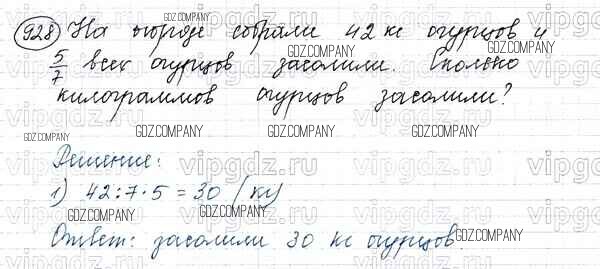 928) На огороде собрали 42 кг огурцов и
5/7 всех огурцов засолили. Сколько
килограммов огурцов засолили?
Решение:
1) 42:7·5=30 (кг)
Ответ: засолили 30 кг огурцов
GDZ.COMPANY
GDZ.COMPANY
GDZ.COMPANY
GDZ.COMPANY
GDZ.COMPANY
GDZ.COMPANY
GDZ.COMPANY
GDZ.COMPANY
GDZ.COMPANY
GDZ.COMPANY
vipgdz.ru
vipgdz.ru
vipgdz.ru
vipgdz.ru